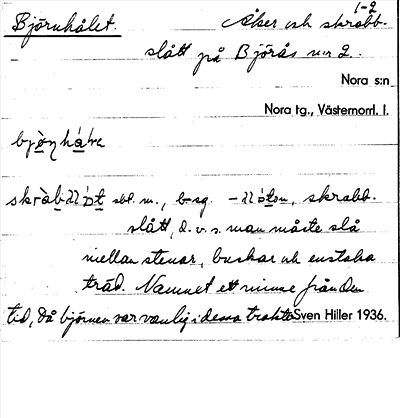 1-2
Björnhålet. Åker och skrabb-
slått på Björås nr 2.
Nora s:n
Nora tg., Västernorrl. l.
skrabb-
slått, d.v.s. man måste slå
mellan stenar, buskar och enstaka
träd. Namnet ett minne från den
tid, då björnen var vanlig i dessa trakter Sven Hiller 1936.